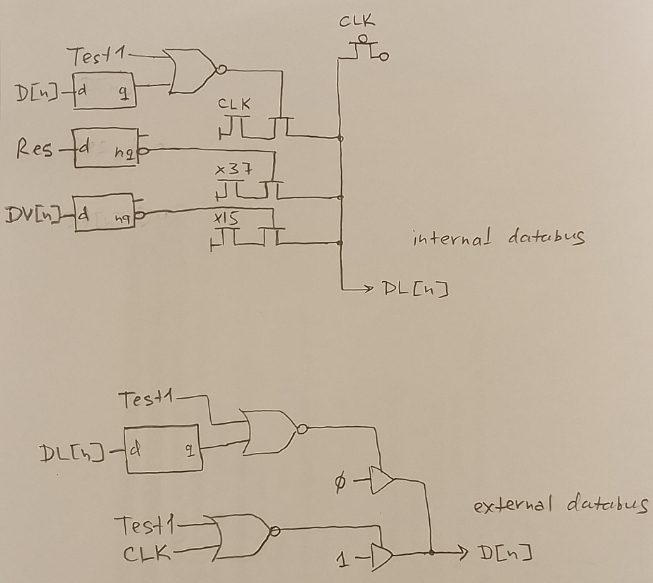 CLK
Test1
D[n] d q
CLK
Res d nq
x37
DV[n] d nq
x15
internal databus
DL[n]
Test1
DL[n] d q
0
external databus
Test1
CLK
1 D[n]